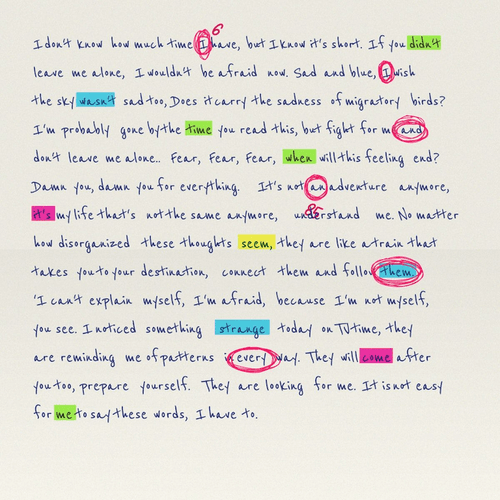 I don't know how much time I have, but I know it's short. If you didn't
leave me alone, I wouldn't be afraid now. Sad and blue, I wish
the sky wasn't sad too, Does it carry the sadness of migratory birds?
I'm probably gone by the time you read this, but fight for me and
don't leave me alone.. Fear, Fear, Fear, when will this feeling end?
Damn you, damn you for everything. It's not an adventure anymore,
it's my life that's not the same anymore, understand me. No matter
how disorganized these thoughts seem, they are like a train that
takes you to your destination, connect them and follow them.
'I can't explain myself, I'm afraid, because I'm not myself,
you see. I noticed something strange today on TV time, they
are reminding me of patterns in every way. They will come after
you too, prepare yourself. They are looking for me. It is not easy
for me to say these words, I have to.